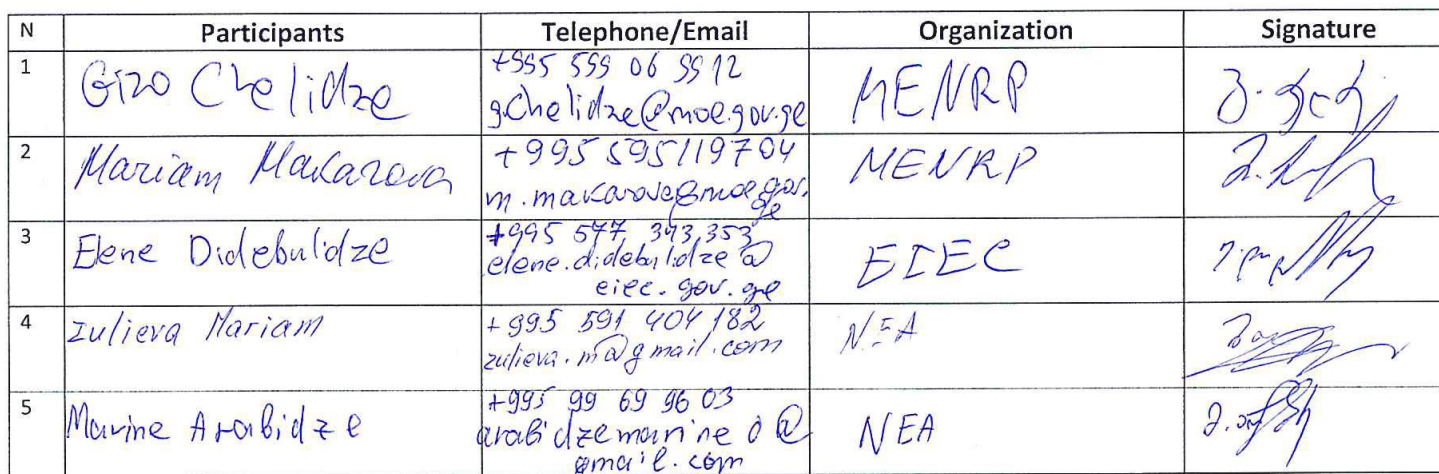 N Participants Telephone/Email Organization Signature
1 Gizo Chelidze +995 599 06 99 12 MENRP
gchelidze@moe.gov.ge
2 Mariam Makarova +995 595119704 MENRP
m.makarova@moe.gov.
ge
3 Elene Didebulidze +995 577 373,353 EIEC
elene.didebulidze@
eiec.gov.ge
4 zulieva Mariam +995 591 404 182 NEA
zulieva.m@gmail.com
5 Marine Arabidze +995 99 69 96 03 NEA
arabidzemarine0@
gmail.com